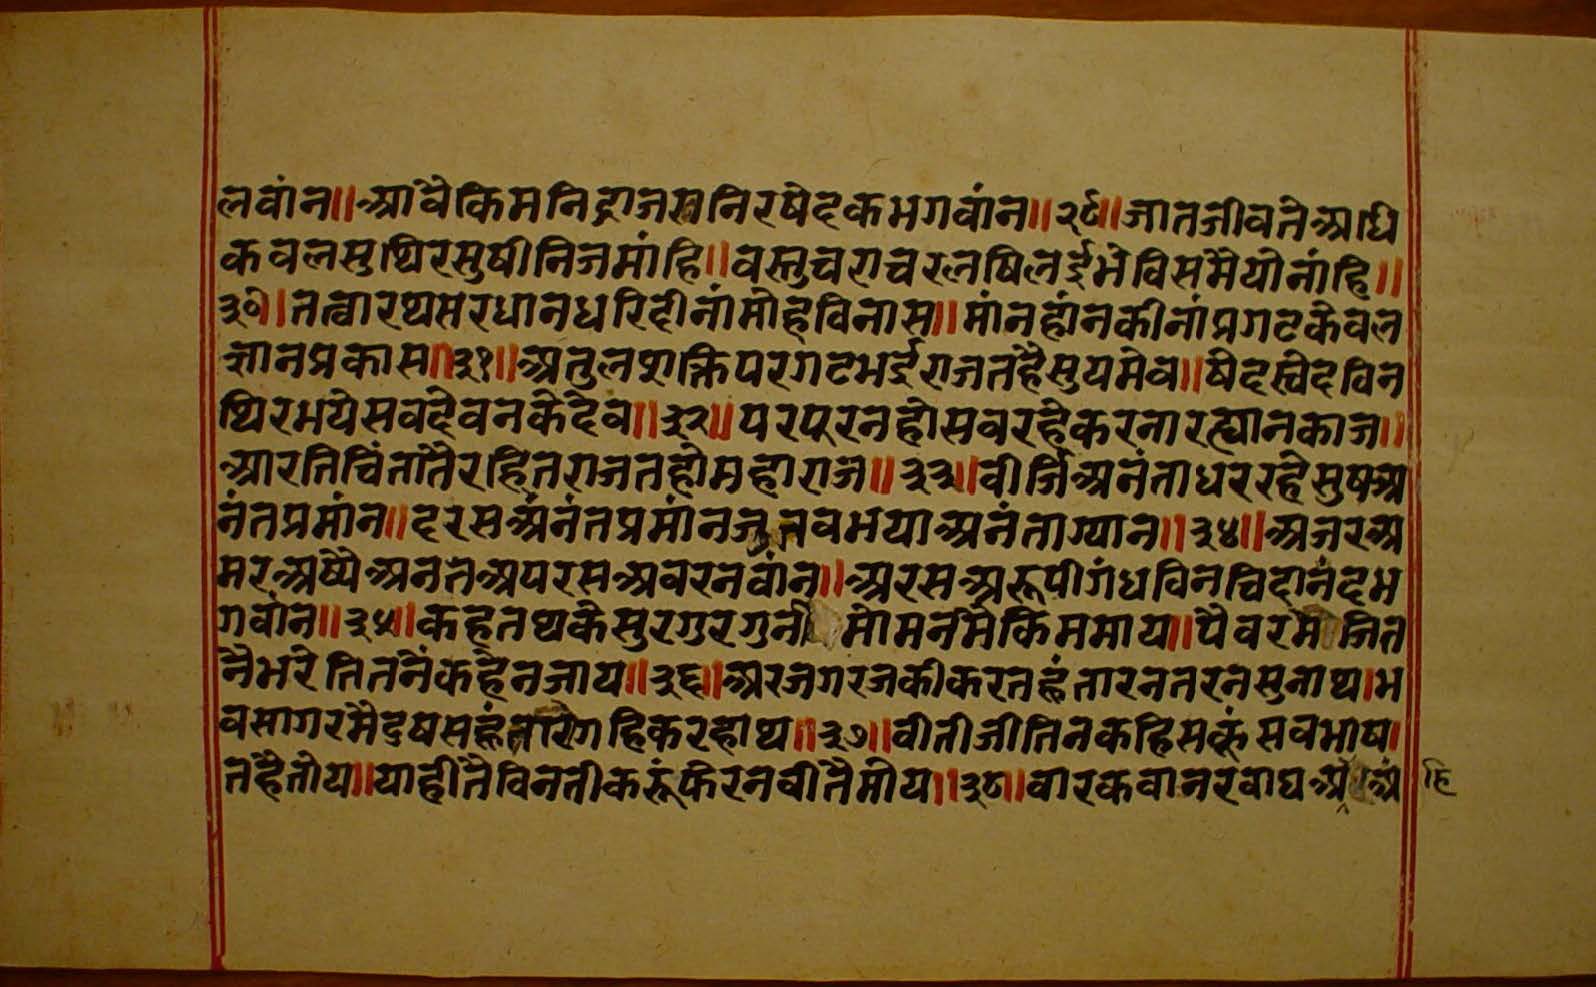 लवांन॥आवैकिमनिद्राजसनिरषेदकभगवांन॥२९॥जातजीवतेअधि
कवलसुथिरसुषीनिजमांहि॥वस्तुचराचरलषिलईभेविसमैयौनांहि॥
३०॥तत्वारथसरधानधरिदीनांमोहविनास॥मांनहांनकीनांप्रगटकेवल
ज्ञानप्रकास॥३१॥अतुलशक्तिपरगटभईराजतहैसुयमेव॥षेदस्वेदविन
थिरभयेसवदेवनकेदेव॥३२॥परपूरनहोसवरहेकरनारह्यानकाज॥
आरतिचिंतातैरहितराजतहोमहाराज॥३३॥वीर्जिअनंताधररहेसुषअ
नंतप्रमांन॥दरसअनंतप्रमांनजुतवभयाअनंताग्यान॥३४॥अजरअ
मरअष्यैअनतअपरसअवरनवांन॥अरसअरूपीगंधविनचिदानंदभ
गवांन॥३५॥कहतथकेसुरगुरगुनीमोमनमैकिममाय॥पैवरमेजित
नैभरेतितनैंकहेनजाय॥३६॥अरजगरजकीकरतहूंतारनतरनसुनाथ।भ
वसागरमैदुषसहूंतारोगहिकरहाथ॥३७॥वीतीजीतिनकहिसकूंसवभाष।
तहैतोय॥याहींतैविनतीकरूंफेरनवीतैमोय॥३८॥वारकवानरवाघअअं
हि